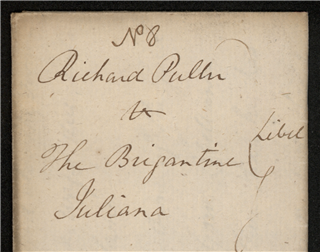 No 8
Richard Pullen
vs
The Brigantine
Juliana
Libel